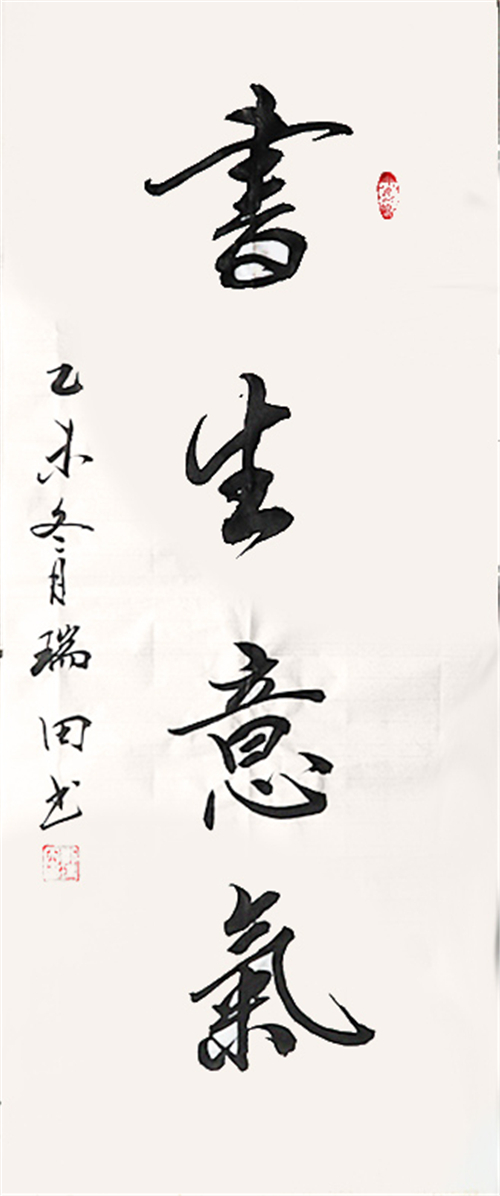 書生意氣
乙未冬月瑞田书